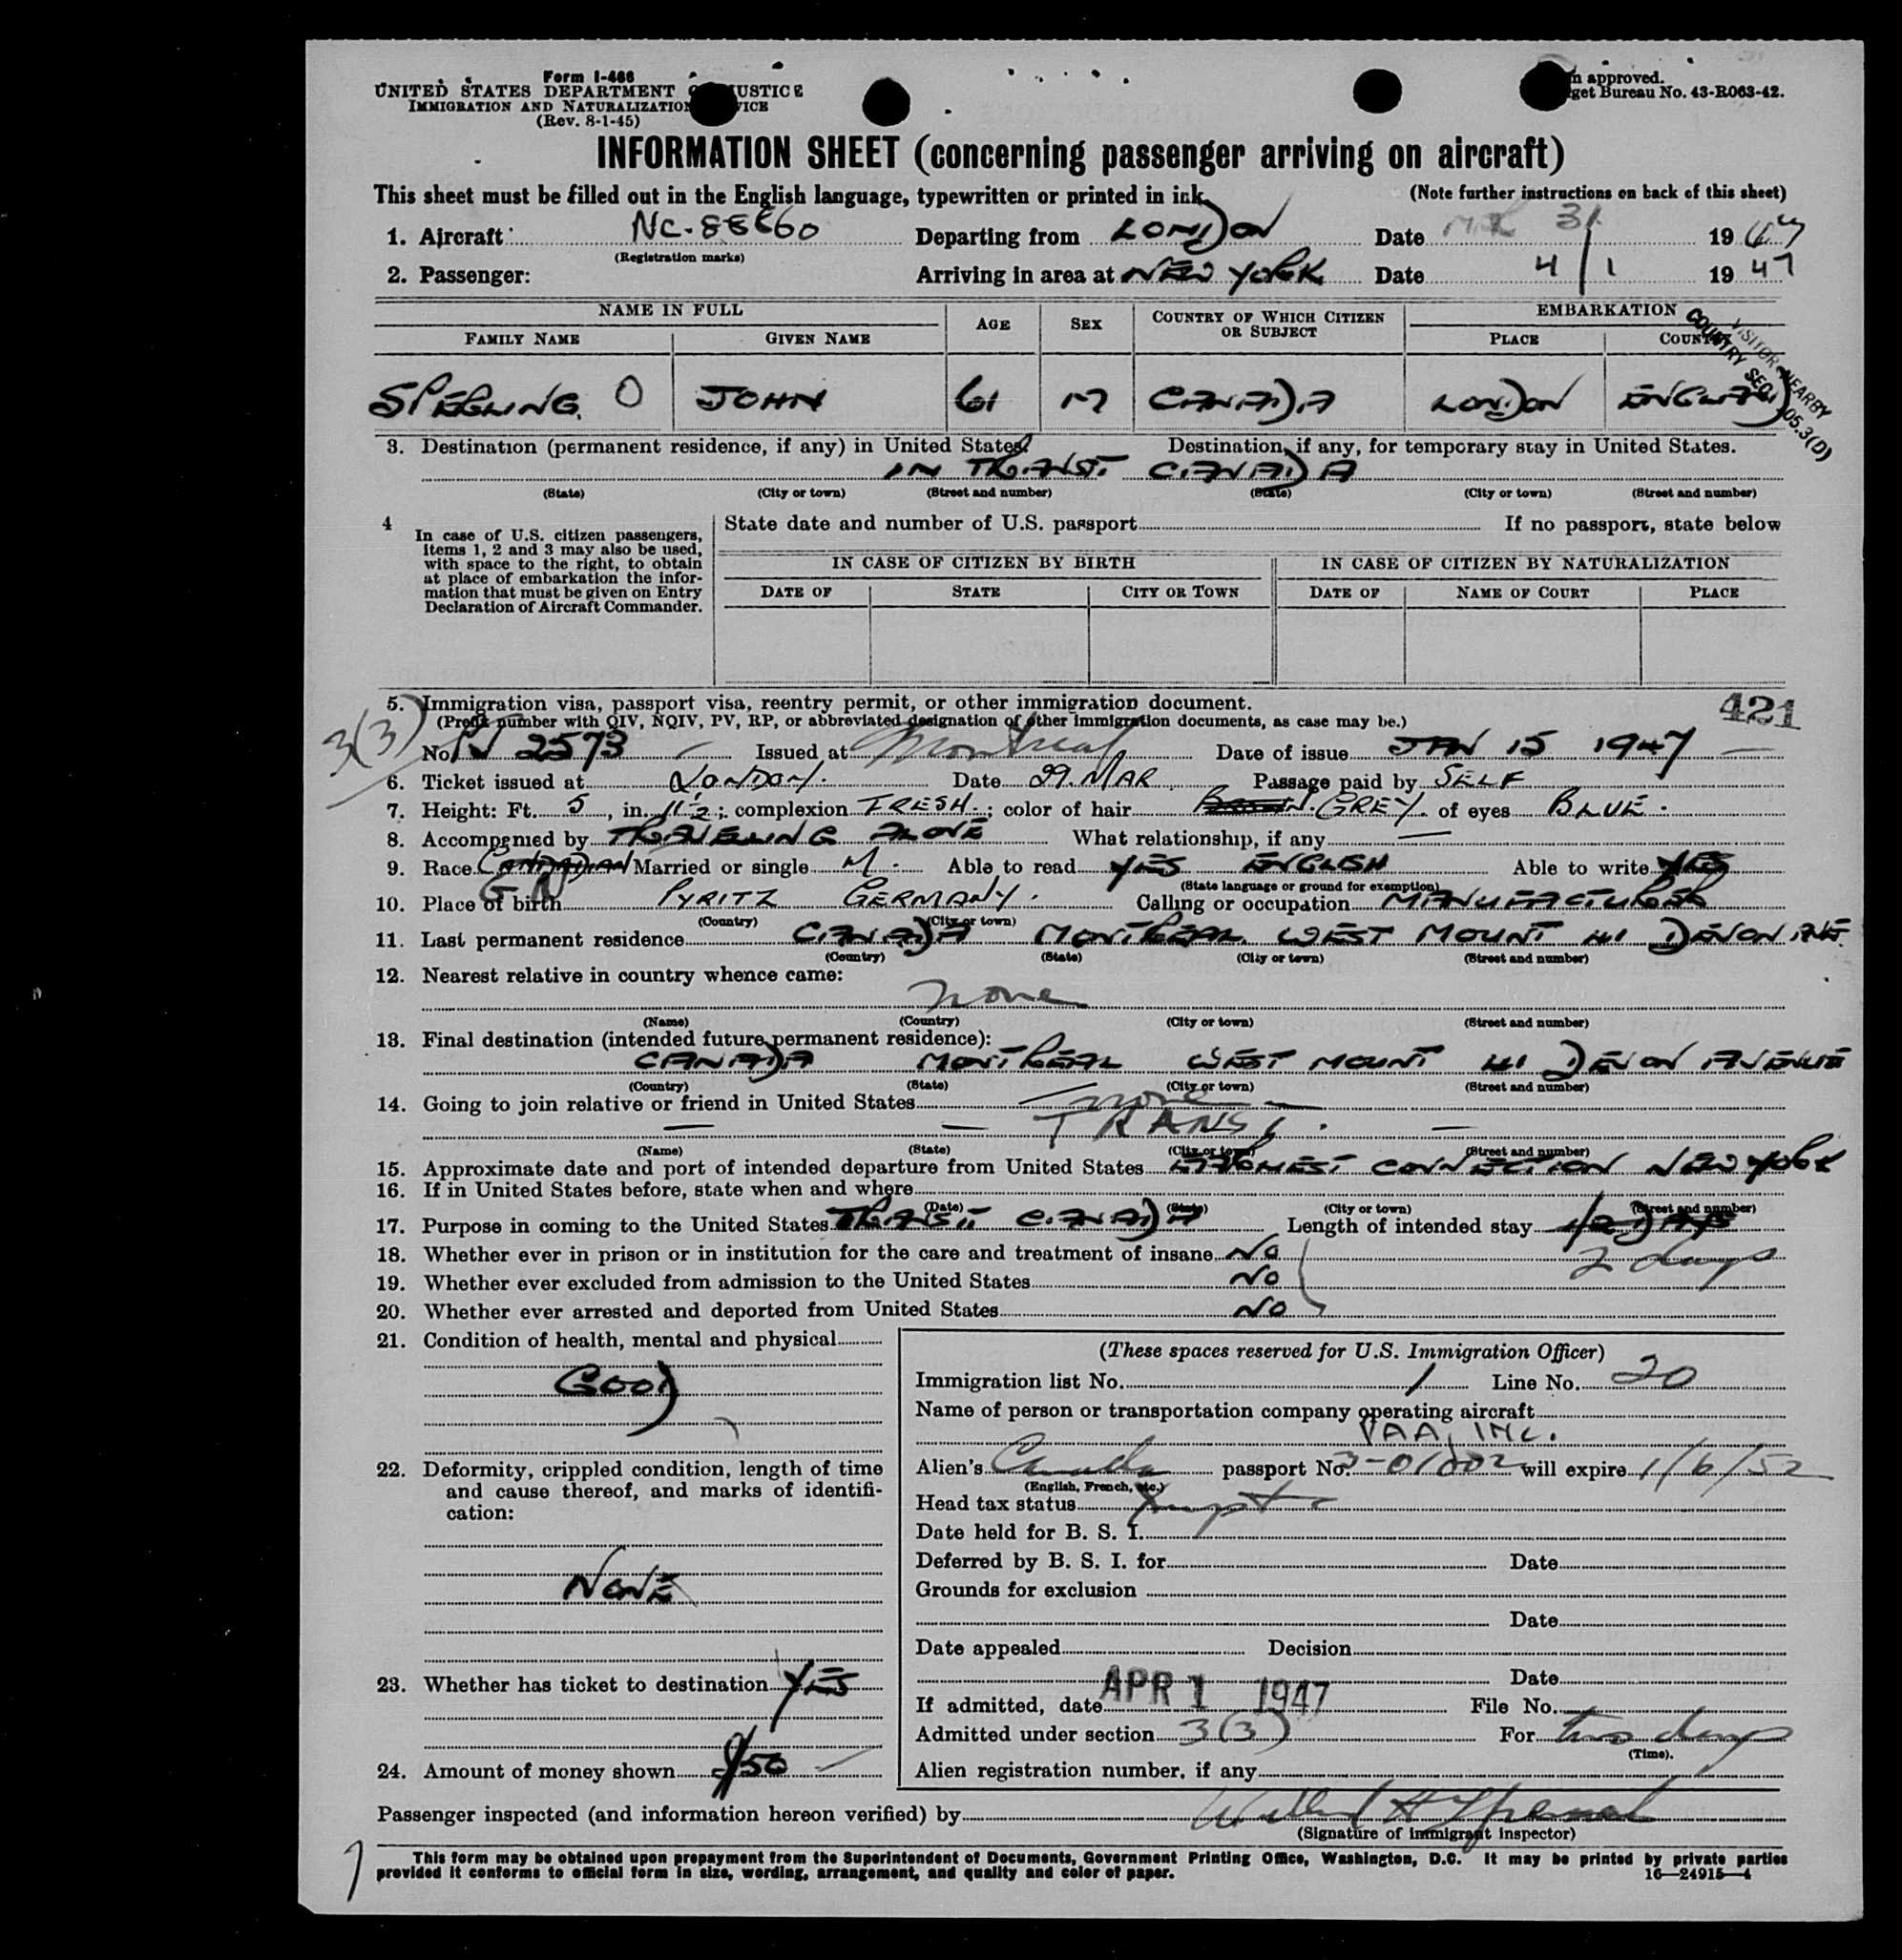 Form I-466
UNITED STATES DEPARTMENT OF JUSTICE
IMMIGRATION AND NATURALIZATION SERVICE
(Rev. 8-1-45)
n approved.
get Bureau No. 43-R063-42.
INFORMATION SHEET (concerning passenger arriving on aircraft)
This sheet must be filled out in the English language, typewritten or printed in ink.
(Note further instructions on back of this sheet)
1. Aircraft NC-88860 Departing from LONDON Date 31 19 47
(Registration marks)
2. Passenger: Arriving in area at NEW YORK Date 4/1 19 47
NAME IN FULL AGE SEX COUNTRY OF WHICH CITIZEN OR SUBJECT EMBARKATION
FAMILY NAME GIVEN NAME PLACE COUNTRY
VISITOR NEARBY
COUNTRY SEC. 105.3(D)
SPERLING O JOHN 61 M CANADA LONDON ENGLAND
3. Destination (permanent residence, if any) in United States. Destination, if any, for temporary stay in United States.
IN TRANSIT CANADA
(State) (City or town) (Street and number) (State) (City or town) (Street and number)
4 In case of U.S. citizen passengers, items 1, 2 and 3 may also be used, with space to the right, to obtain at place of embarkation the information that must be given on Entry Declaration of Aircraft Commander.
State date and number of U.S. passport If no passport, state below
IN CASE OF CITIZEN BY BIRTH IN CASE OF CITIZEN BY NATURALIZATION
DATE OF STATE CITY OR TOWN DATE OF NAME OF COURT PLACE
421
5. Immigration visa, passport visa, reentry permit, or other immigration document.
(Prefix number with QIV, NQIV, PV, RP, or abbreviated designation of other immigration documents, as case may be.)
3(3)
No. PV 2573 Issued at Montreal Date of issue JAN 15 1947
6. Ticket issued at LONDON. Date 29. MAR Passage paid by SELF
7. Height: Ft. 5, in. 11½; complexion FRESH.; color of hair GREY. of eyes BLUE.
8. Accompanied by TRAVELLING ALONE What relationship, if any —
9. Race CANADIAN Married or single M. Able to read YES ENGLISH Able to write YES
GN
(State language or ground for exemption)
10. Place of birth PYRITZ GERMANY. Calling or occupation MANUFACTURER
(Country) (City or town)
11. Last permanent residence CANADA MONTREAL WEST MOUNT 41 DEVON AVE.
(Country) (State) (City or town) (Street and number)
12. Nearest relative in country whence came:
none
(Name) (Country) (City or town) (Street and number)
13. Final destination (intended future permanent residence):
CANADA MONTREAL WEST MOUNT 41 DEVON AVENUE
(Country) (State) (City or town) (Street and number)
14. Going to join relative or friend in United States none
— — TRANSIT. —
(Name) (State) (City or town) (Street and number)
15. Approximate date and port of intended departure from United States CONNECTION NEW YORK
16. If in United States before, state when and where
(Date) (State) (City or town) (Street and number)
17. Purpose in coming to the United States TRANSIT CANADA Length of intended stay 1/2 DAYS
2 days
18. Whether ever in prison or in institution for the care and treatment of insane NO
19. Whether ever excluded from admission to the United States NO
20. Whether ever arrested and deported from United States NO
21. Condition of health, mental and physical
GOOD
22. Deformity, crippled condition, length of time and cause thereof, and marks of identification:
NONE
23. Whether has ticket to destination YES
24. Amount of money shown $50
(These spaces reserved for U.S. Immigration Officer)
Immigration list No. 1 Line No. 20
Name of person or transportation company operating aircraft
PAA, INC.
Alien's Canada passport No. will expire 1/6/52
(English, French, etc.)
Head tax status
Date held for B. S. I.
Deferred by B. S. I. for Date
Grounds for exclusion
Date
Date appealed Decision
Date
If admitted, date APR 1 1947 File No.
Admitted under section 3(3) For two days
(Time).
Alien registration number, if any
Passenger inspected (and information hereon verified) by
(Signature of immigrant inspector)
This form may be obtained upon prepayment from the Superintendent of Documents, Government Printing Office, Washington, D.C. It may be printed by private parties
provided it conforms to official form in size, wording, arrangement, and quality and color of paper.
16—24915—4